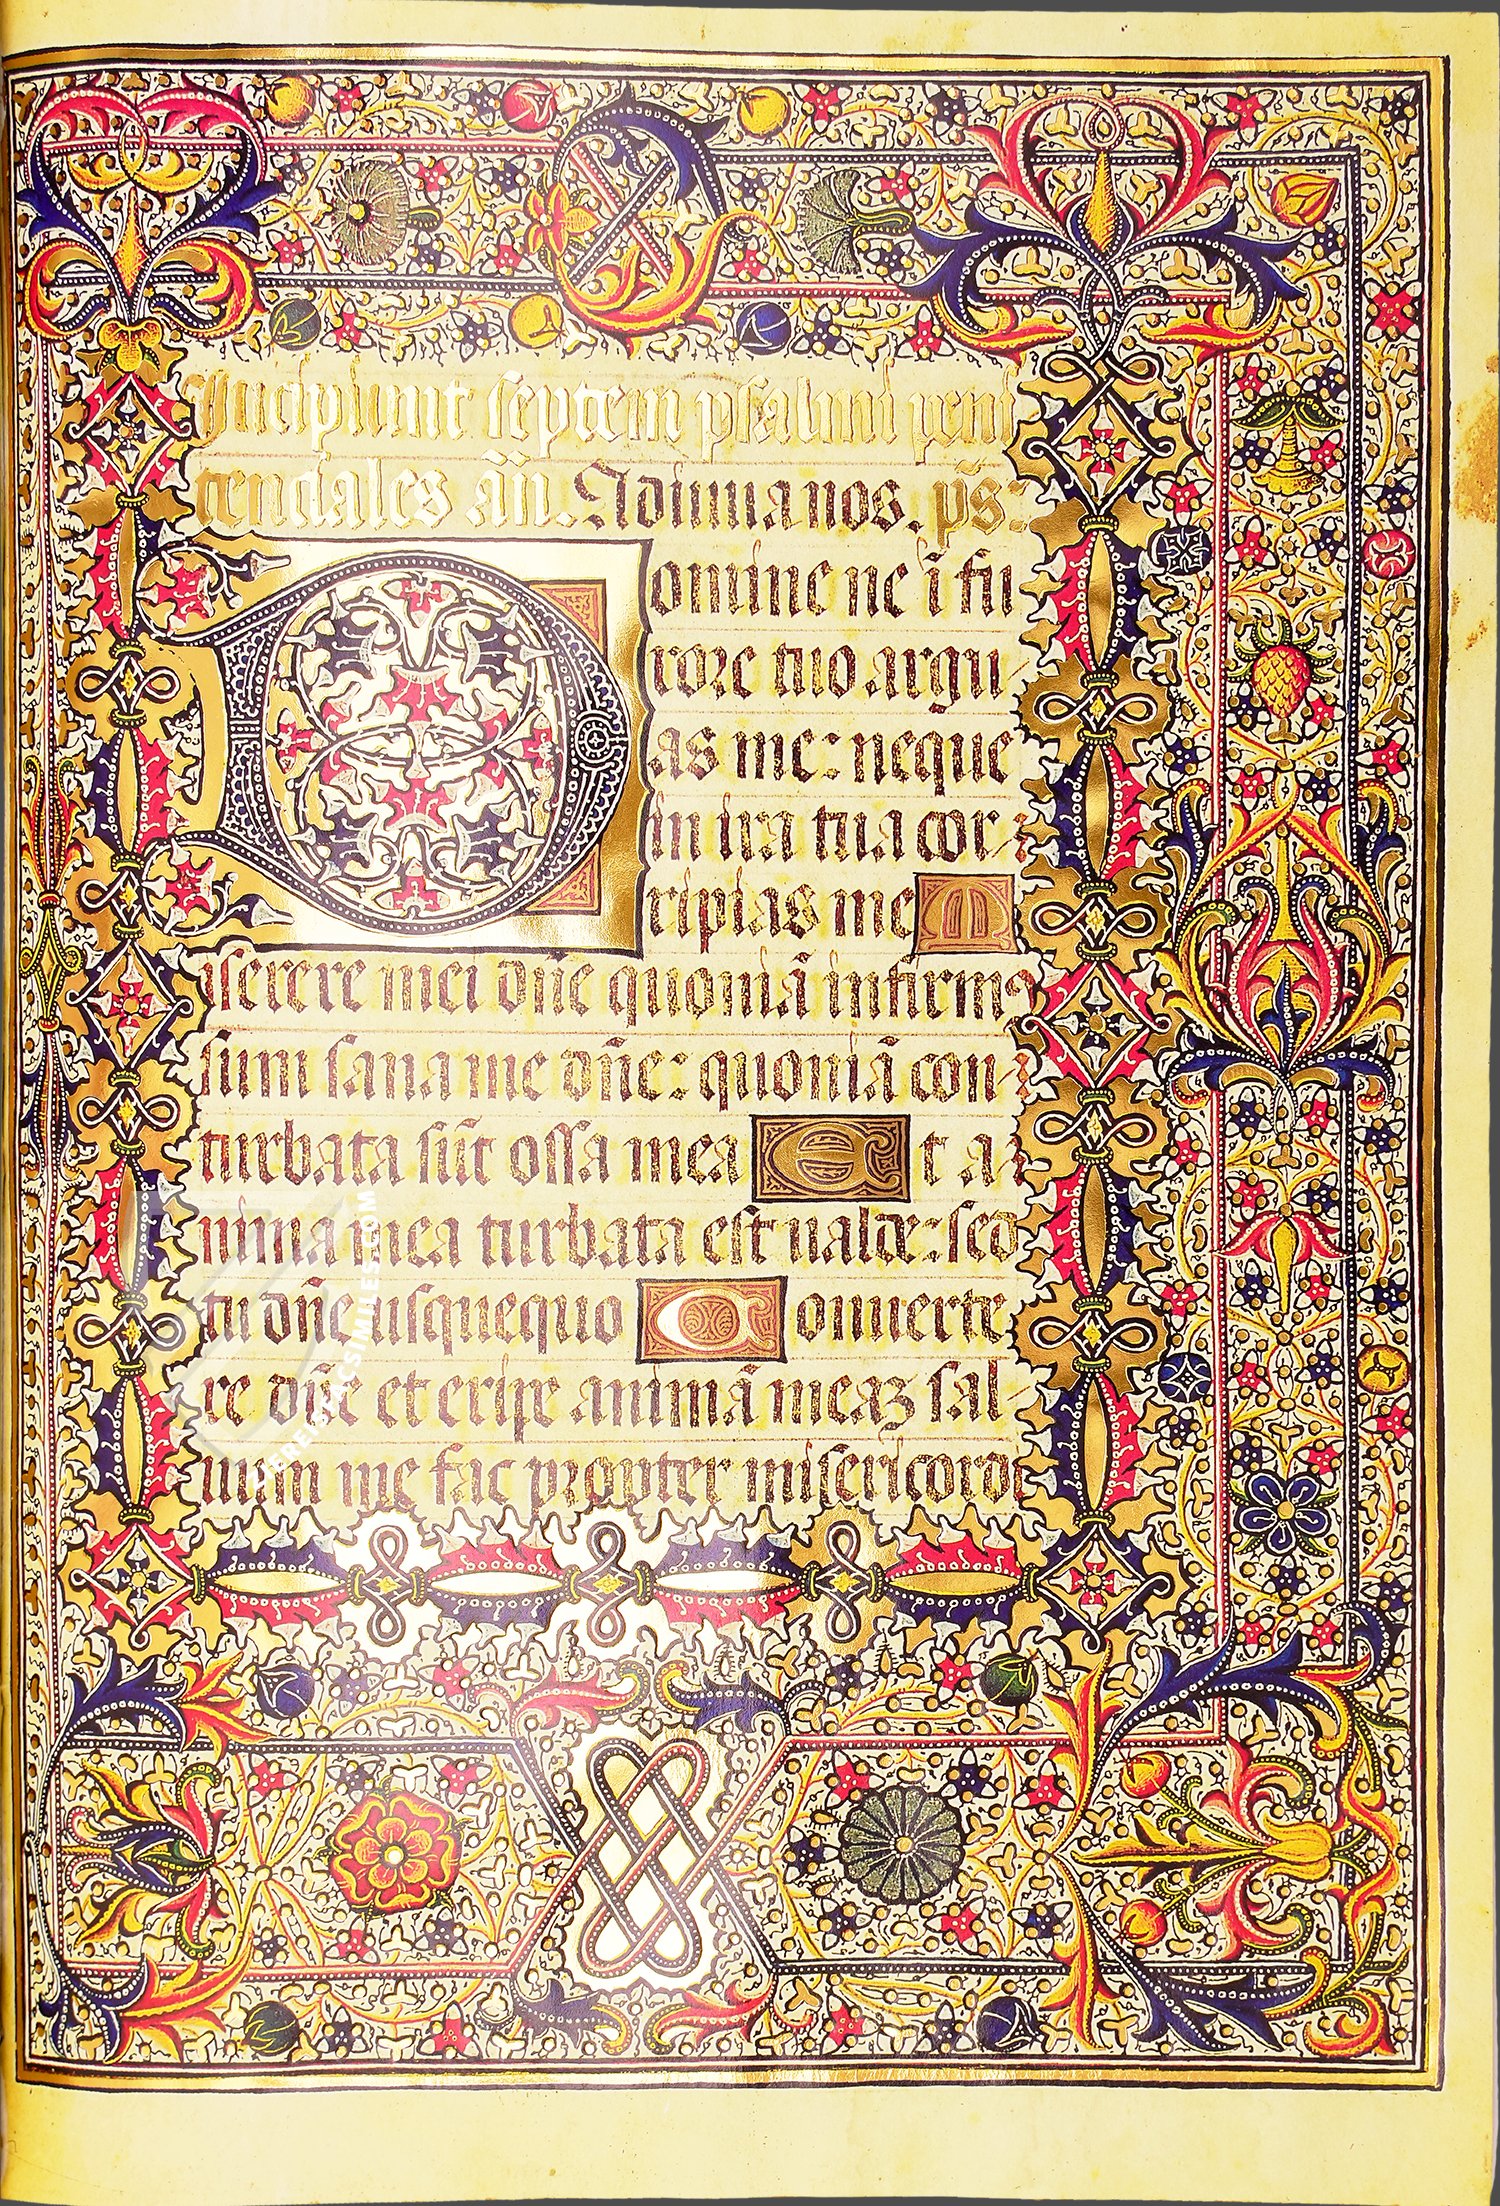 Incipiunt septem psalmi peni
tenciales añ. Ad iuuanos. p̃s:
Domine ne i fu
rore tuo argu
as me: neque
in ira tua cor
ripias me M
iserere mei dñe quoniā infirmꝰ
sum sana me dñe: quoniā con
turbata sūt ossa mea Et a
nima mea turbata est ualde: sed
tu dñe usquequo Conuerte
re dñe et eripe animā meaz sal
uum me fac propter misericord
HEREFACSIMILES.COM